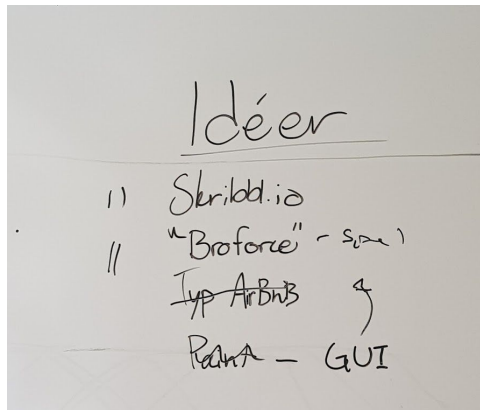 Idéer
|| Skribbl.io
|| "Broforce" - spel
Typ AirBnB
Paint - GUI